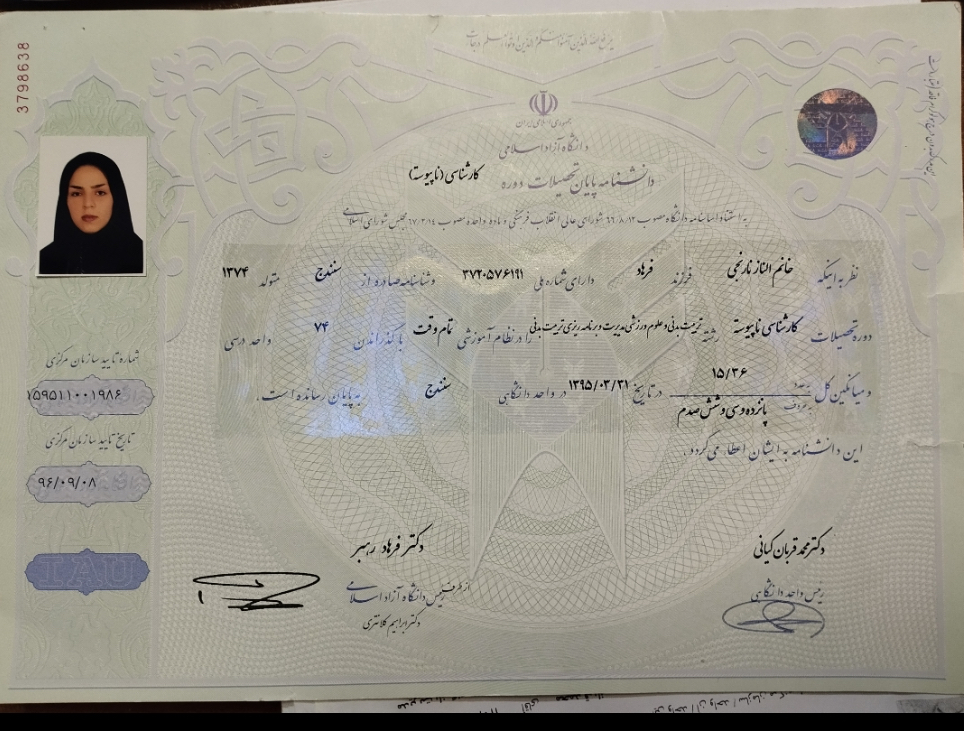 3798638
جمهوری اسلامی ایران
دانشگاه آزاد اسلامی
دانشنامه پایان تحصیلات دوره کارشناسی (ناپیوسته)
به استناد اساسنامه دانشگاه مصوب ۶۶/۸/۱۲ شورای عالی انقلاب فرهنگی و ماده واحده مصوب ۶۷/۲/۱۴ مجلس شورای اسلامی
نظر به اینکه خانم الناز نارنجی فرزند فرهاد دارای شماره ملی ۳۷۲۰۵۷۶۱۹۱ و شناسنامه صادره از سنندج متولد ۱۳۷۴
دوره تحصیلات کارشناسی ناپیوسته رشته تربیت بدنی و علوم ورزشی مدیریت و برنامه ریزی تربیت بدنی را در نظام آموزشی تمام وقت با گذراندن ۷۴ واحد درسی
و میانگین کل به عدد ۱۵/۳۶ به حروف پانزده و سی و شش صدم در تاریخ ۱۳۹۵/۰۳/۳۱ در واحد دانشگاهی سنندج به پایان رسانده است.
این دانشنامه به ایشان اعطا می گردد.
شماره تایید سازمان مرکزی
۱۵۹۵۱۱۰۰۱۹۸۶
تاریخ تایید سازمان مرکزی
۹۶/۰۹/۰۸
IAU
دکتر محمد قربان کیانی
رئیس واحد دانشگاهی
دکتر فرهاد رهبر
از طرف رئیس دانشگاه آزاد اسلامی
دکتر ابراهیم کلانتری